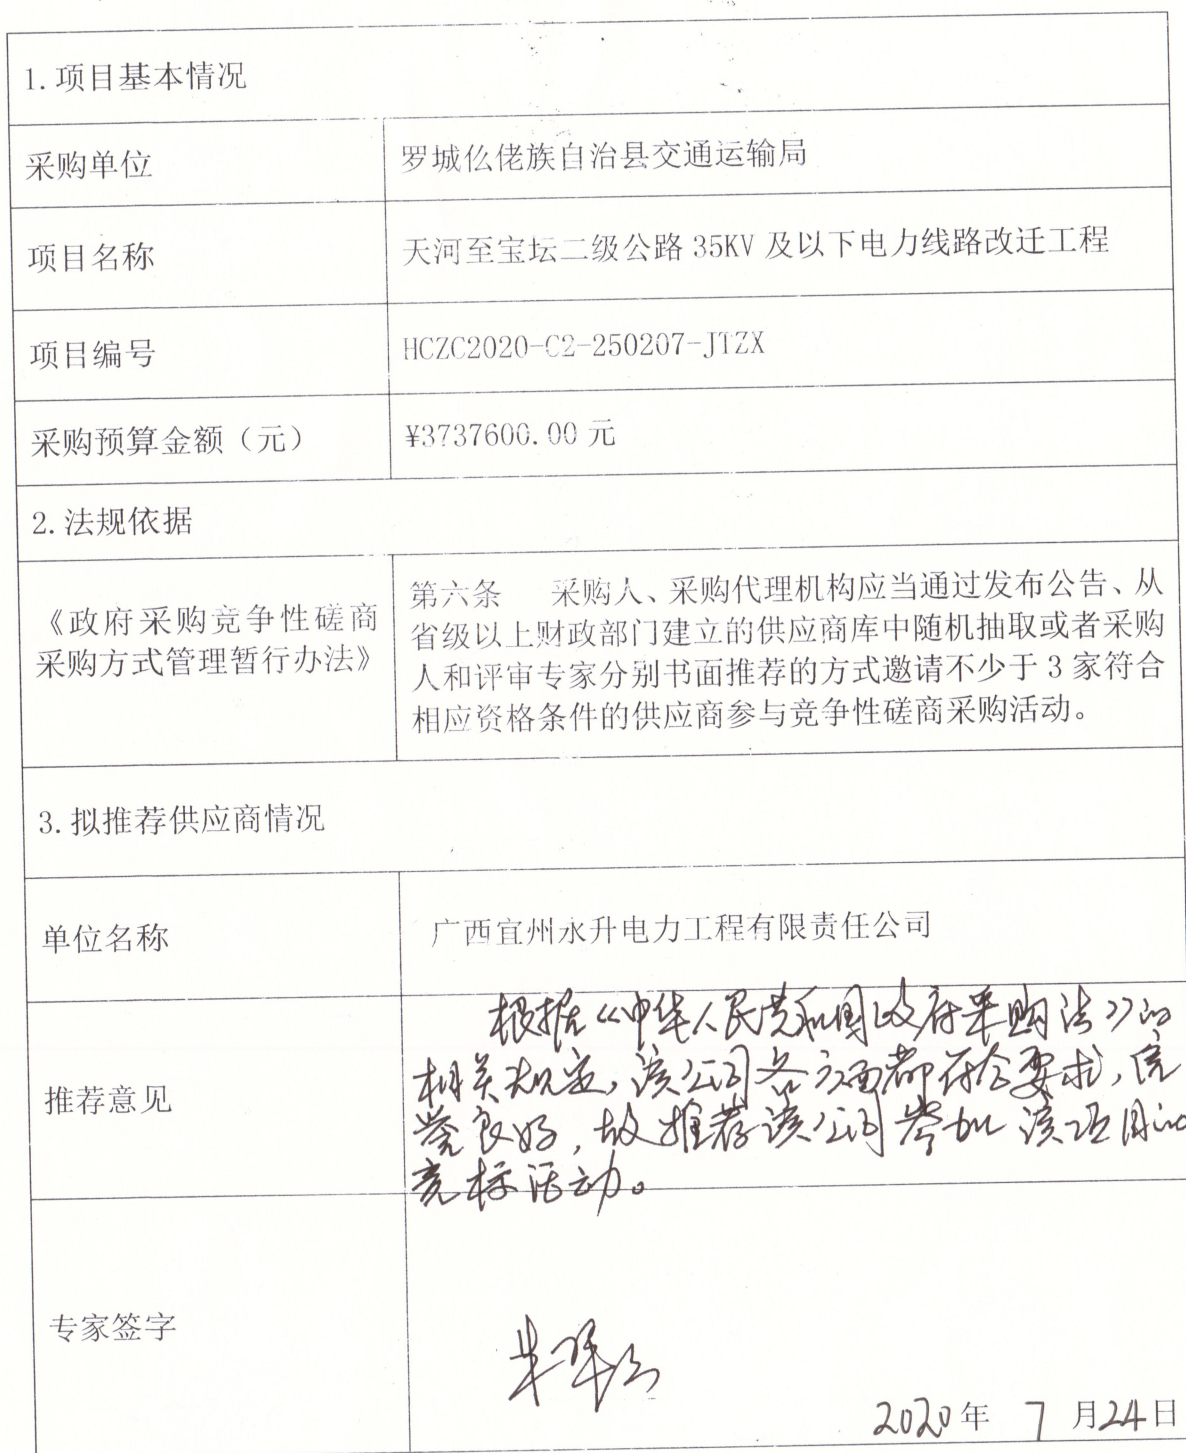 1.项目基本情况
采购单位
罗城仫佬族自治县交通运输局
项目名称
天河至宝坛二级公路 35KV 及以下电力线路改迁工程
项目编号
HCZC2020-C2-250207-JTZX
采购预算金额（元）
¥3737600.00 元
2.法规依据
《政府采购竞争性磋商
采购方式管理暂行办法》
第六条 采购人、采购代理机构应当通过发布公告、从
省级以上财政部门建立的供应商库中随机抽取或者采购
人和评审专家分别书面推荐的方式邀请不少于 3 家符合
相应资格条件的供应商参与竞争性磋商采购活动。
3.拟推荐供应商情况
单位名称
广西宜州永升电力工程有限责任公司
推荐意见
根据《中华人民共和国政府采购法》的
相关规定，该公司各方面都符合要求，信
誉良好，故推荐该公司参加该项目的
竞标活动。
专家签字
2020年 7 月24日